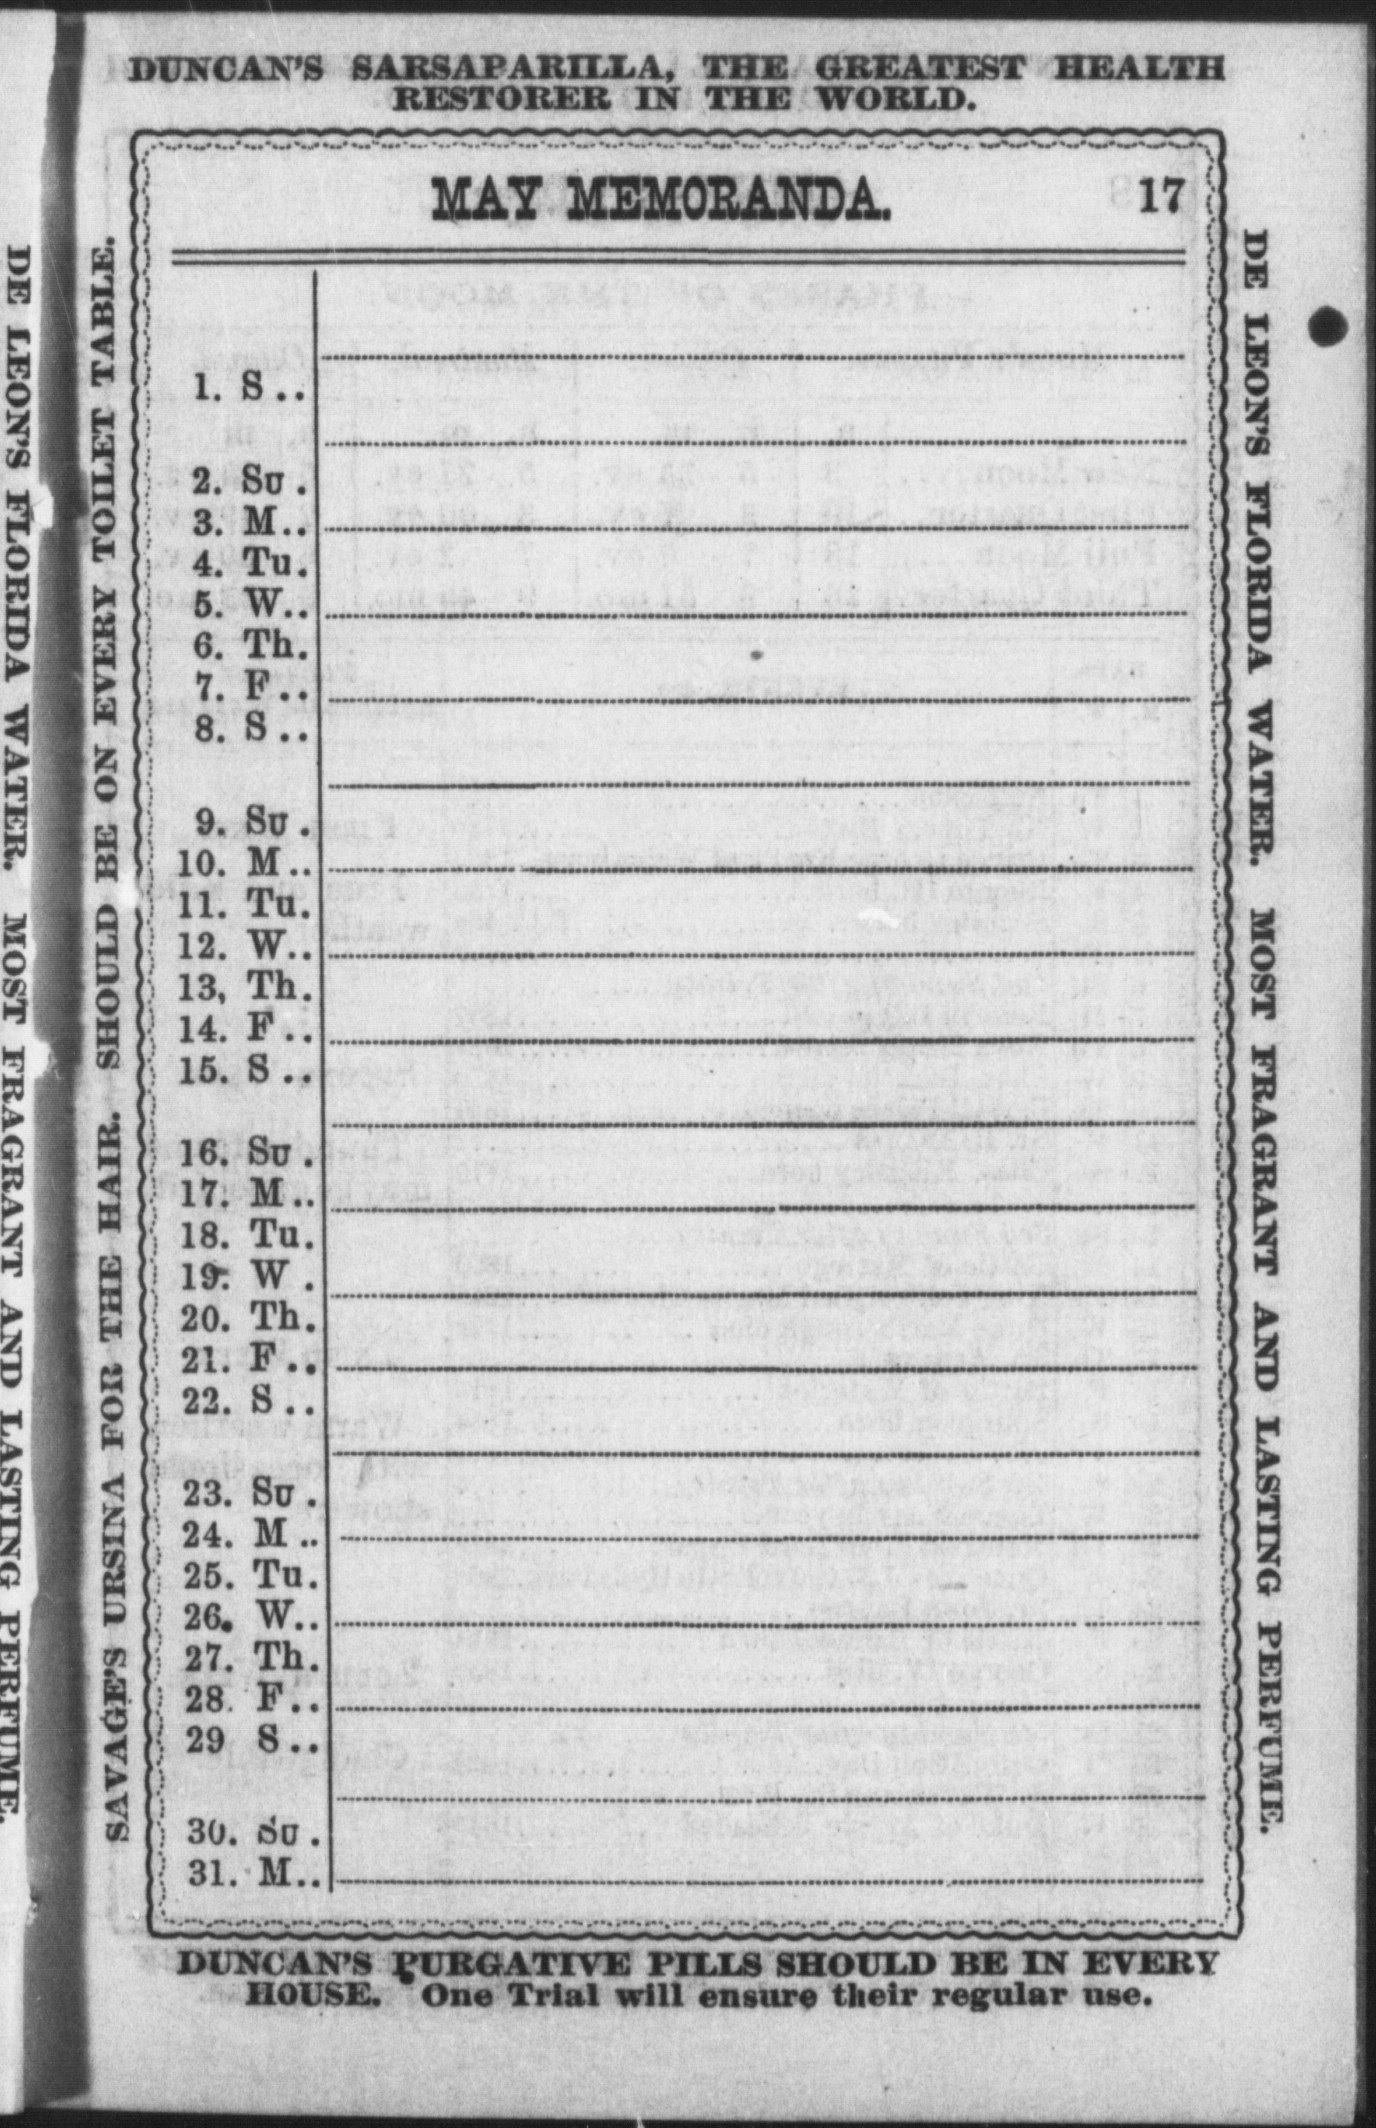 DUNCAN'S SARSAPARILLA, THE GREATEST HEALTH
RESTORER IN THE WORLD.
MAY MEMORANDA. 17
1. S ..
2. Su .
3. M..
4. Tu.
5. W..
6. Th.
7. F ..
8. S ..
9. Su .
10. M ..
11. Tu.
12. W..
13, Th.
14. F ..
15. S ..
16. Su .
17. M ..
18. Tu.
19. W .
20. Th.
21. F ..
22. S ..
23. Su .
24. M ..
25. Tu.
26. W..
27. Th.
28. F ..
29 S ..
30. Su .
31. M..
DUNCAN'S PURGATIVE PILLS SHOULD BE IN EVERY
HOUSE. One Trial will ensure their regular use.
SAVAGE'S URSINA FOR THE HAIR. SHOULD BE ON EVERY TOILET TABLE.
DE LEON'S FLORIDA WATER. MOST FRAGRANT AND LASTING PERFUME.
DE LEON'S FLORIDA WATER. MOST FRAGRANT AND LASTING PERFUME.